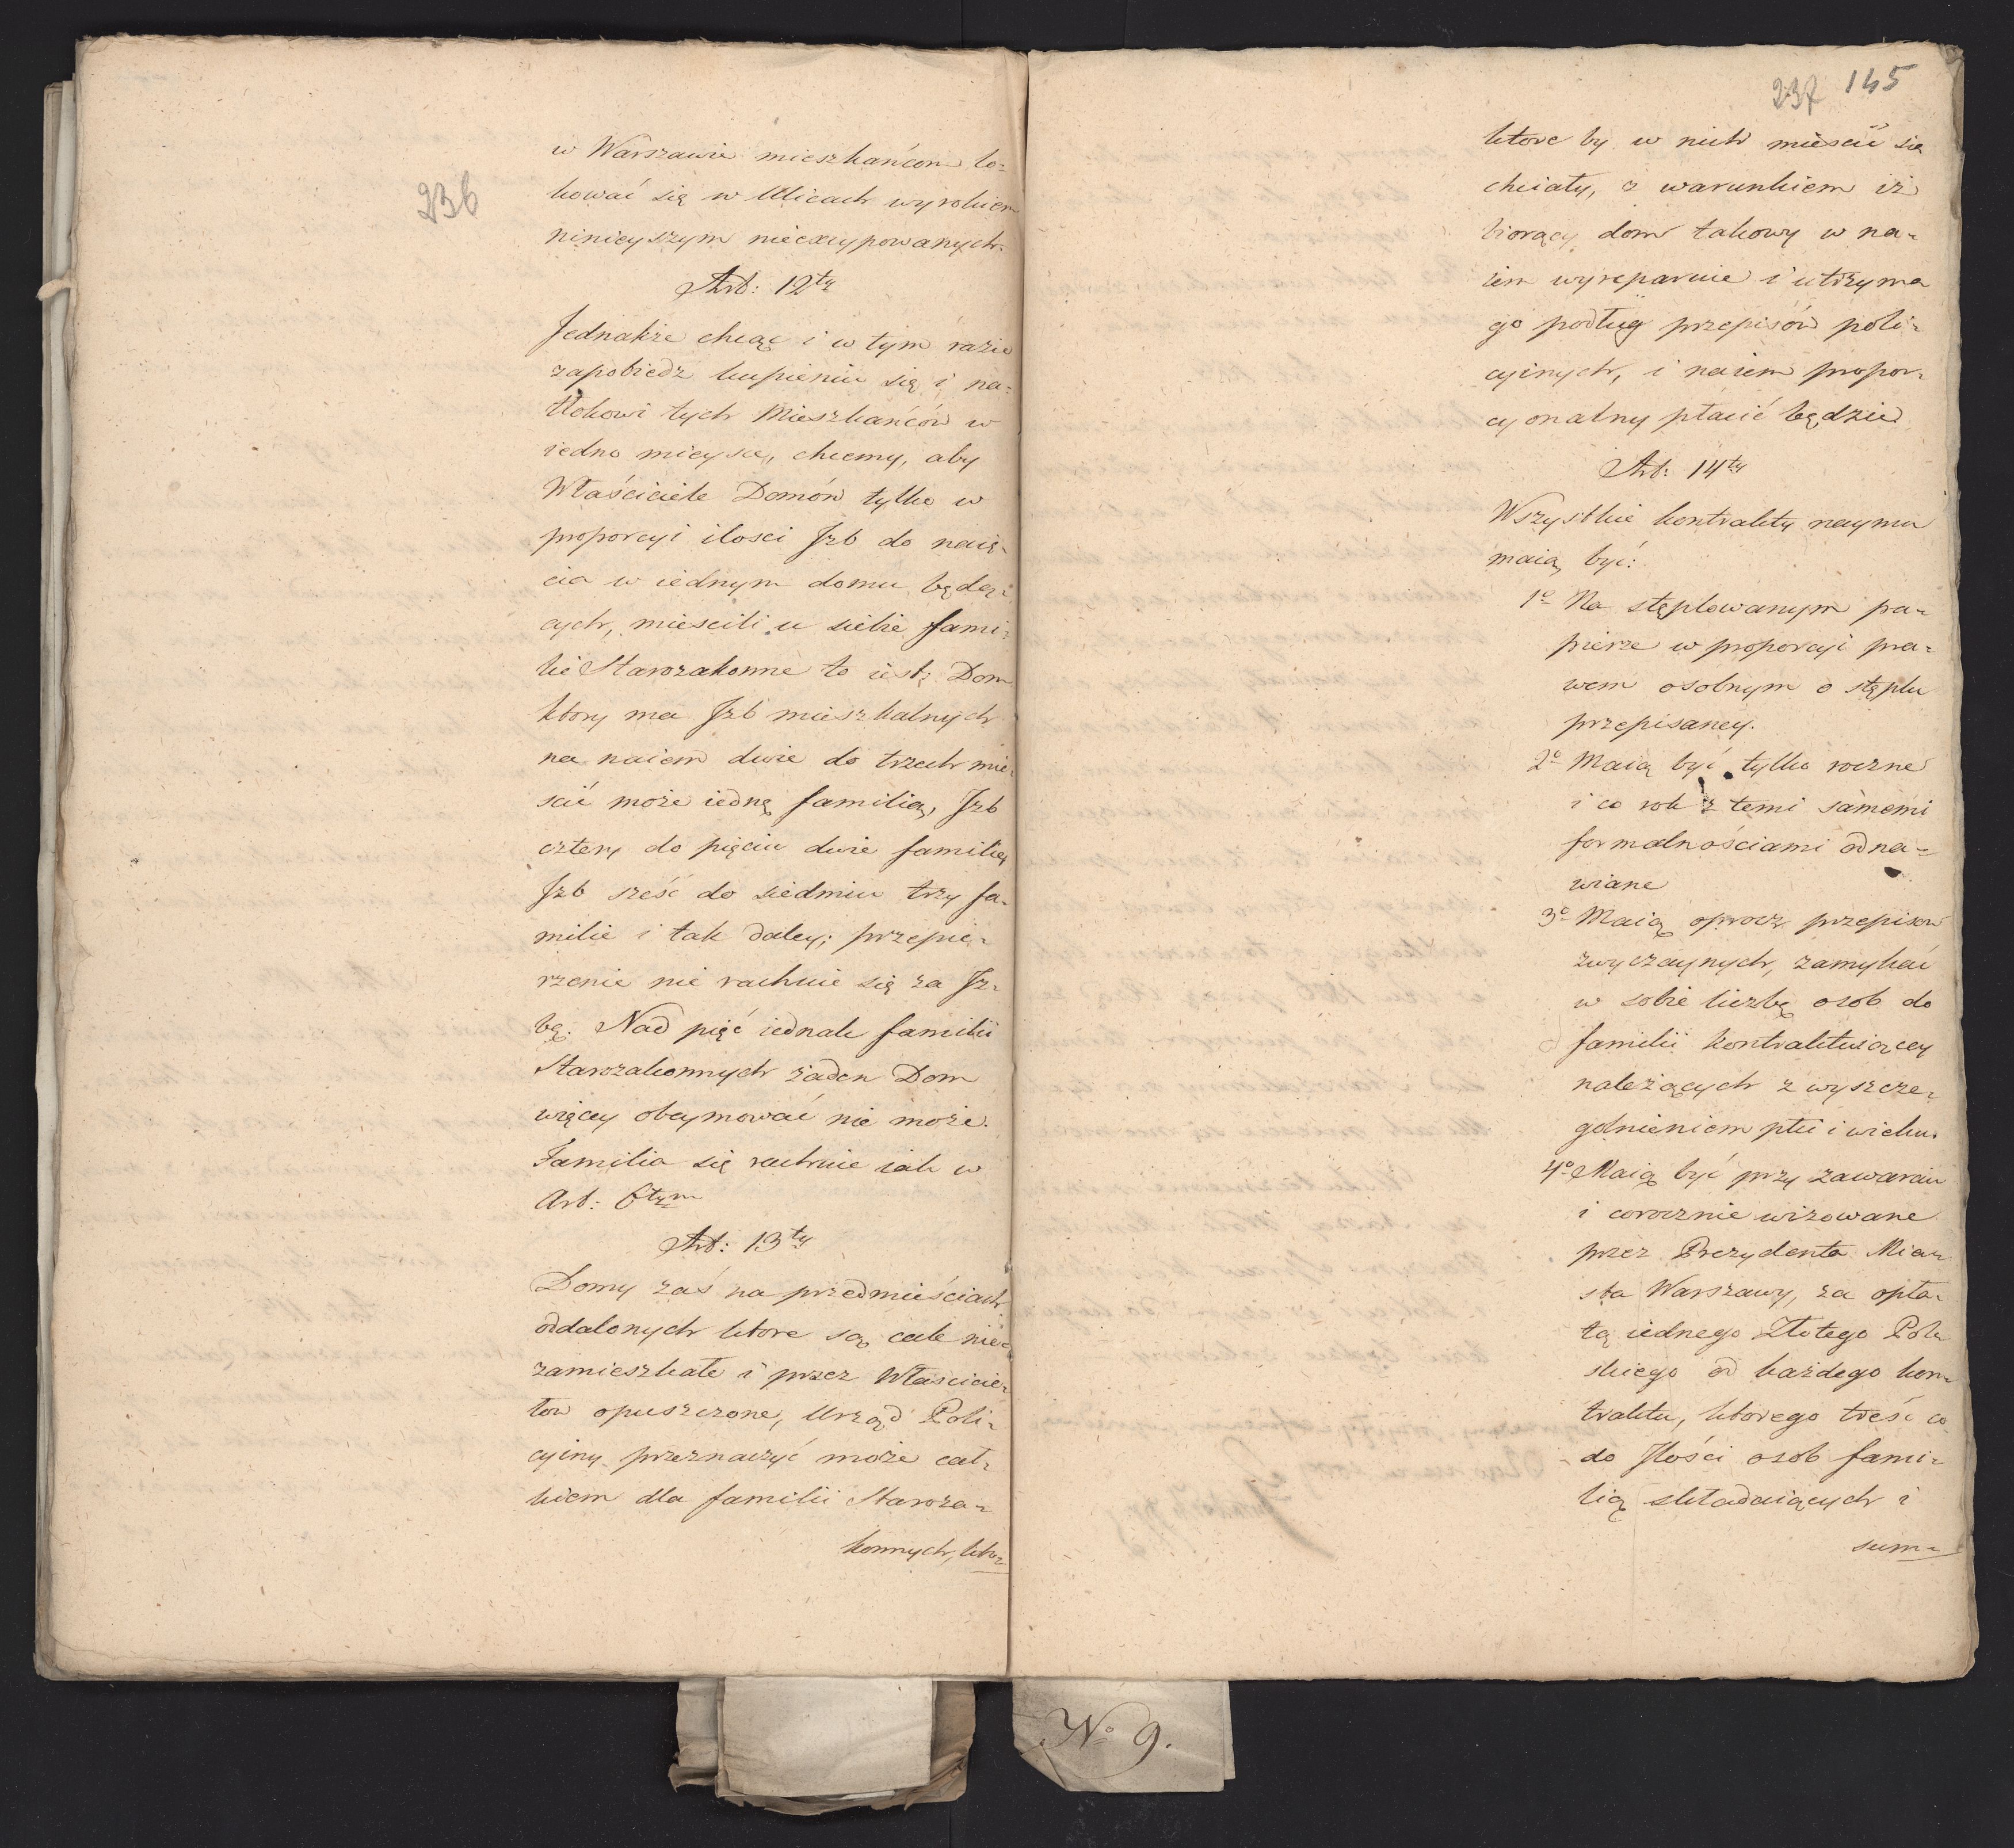 236
w Warszawie mieszkańcom lo=
kować się w Ulicach wyrokiem
ninieyszym nieexcypowanych.
Art: 12ty
Jednakże chcąc i w tym razie
zapobiedz kupieniu się i na=
tłokowi tych Mieszkańców w
iedno mieysce, chcemy, aby
Właściciele Domów tylko w
proporcyi ilosci Jzb do naię=
cia w iednym domu będą=
cych, miescili u siebie fami=
lie Starozakonne to iest: Dom
ktory ma Jzb mieszkalnych
na naiem dwie do trzech mie=
scić może iedną familią, Jzb
cztery do pięciu dwie familie,
Jzb sześć do siedmiu trzy fa=
milie i tak daley; przepie=
rzenie nie rachuie się za Jz=
bę. Nad pięć iednak familii
Starozakonnych żaden Dom
więcey obeymować nie może.
Familia się rachuie iak w
Art: 6tym
Art: 13ty
Domy zaś na przedmieściach
oddalonych ktore są cale nie=
zamieszkałe i przez Właścicie=
low opuszczone, Urząd Poli=
cyiny przeznaczyć może cał=
kiem dla familii Staroza=
konnych, kto=
237 145
ktore by w nich mieścić się
chciały, z warunkiem iż
biorący dom takowy w na=
iem wyreparuie i utrzyma
go podług przepisów poli=
cyinych, i naiem propor=
cyonalny płacić będzie
Art: 14ty
Wszystkie kontrakty naymu
maią być:
1o Na stęplowanym pa=
pierze w proporcyi pra=
wem osobnym o stęplu
przepisaney.
2o Maią być tylko roczne
i co rok z temi samemi
formalnościami odna=
wiane
3o Maią oprocz przepisow
zwyczaynych, zamykać
w sobie liczbę osob do
familii kontraktuiącey
należących z wyszcze=
golnieniem płci i wieku.
4o Maią być przy zawarciu
i corocznie wizowane
przez Prezydenta Mia=
sta Warszawy, za opła=
tą iednego Złotego Pol=
skiego od każdego kon=
traktu, ktorego treść co
do Jlości osob fami=
lią składaiących i
sum=
No 9.